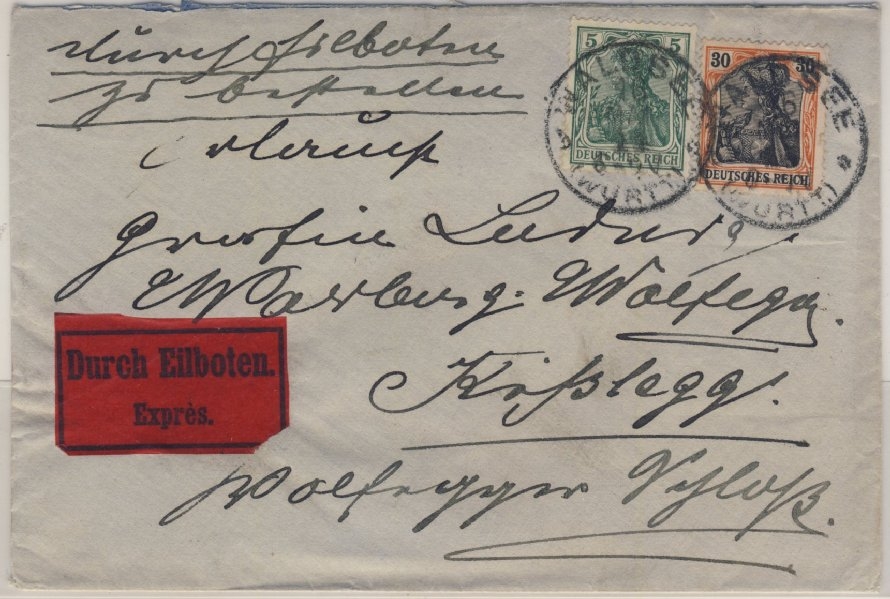 durch Eilboten
zu bestellen
5 5
DEUTSCHES REICH
30 30
DEUTSCHES REICH
WALDSEE
(WÜRTT.)
WALDSEE
(WÜRTT.)
Erlaucht
Gräfin Ludwig
Waldburg-Wolfegg.
Durch Eilboten.
Exprès.
Kißlegg.
Wolfegger Schloß.